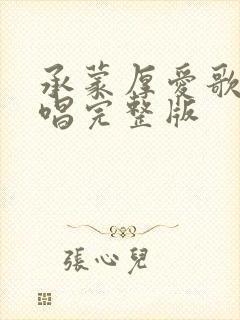 承蒙厚愛歌
唱完整版
張心兒